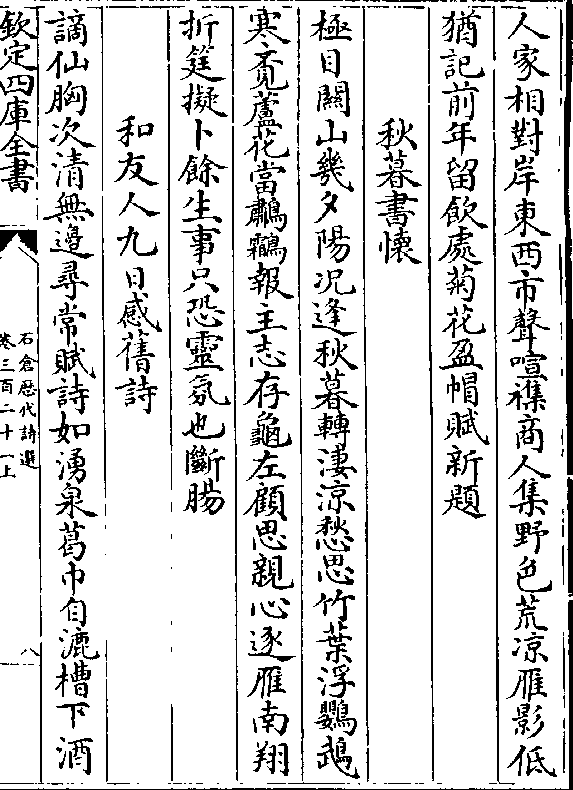 人家相對岸東西市聲喧襍商人集野色荒凉雁影低
猶記前年留飲處菊花盈帽賦新題
秋暮書懷
極目關山幾夕陽况逢秋暮轉淒凉愁思竹葉浮鸚鵡
寒賫蘆花當鷫鸘報主志存龜左顧思親心逐雁南翔
折筳擬卜餘生事只恐靈氛也斷腸
和友人九日感舊詩
謫仙胸次清無邊尋常賦詩如湧泉葛巾自漉槽下酒
欽定四庫全書
石倉歴代詩選
卷三百二十一上
八